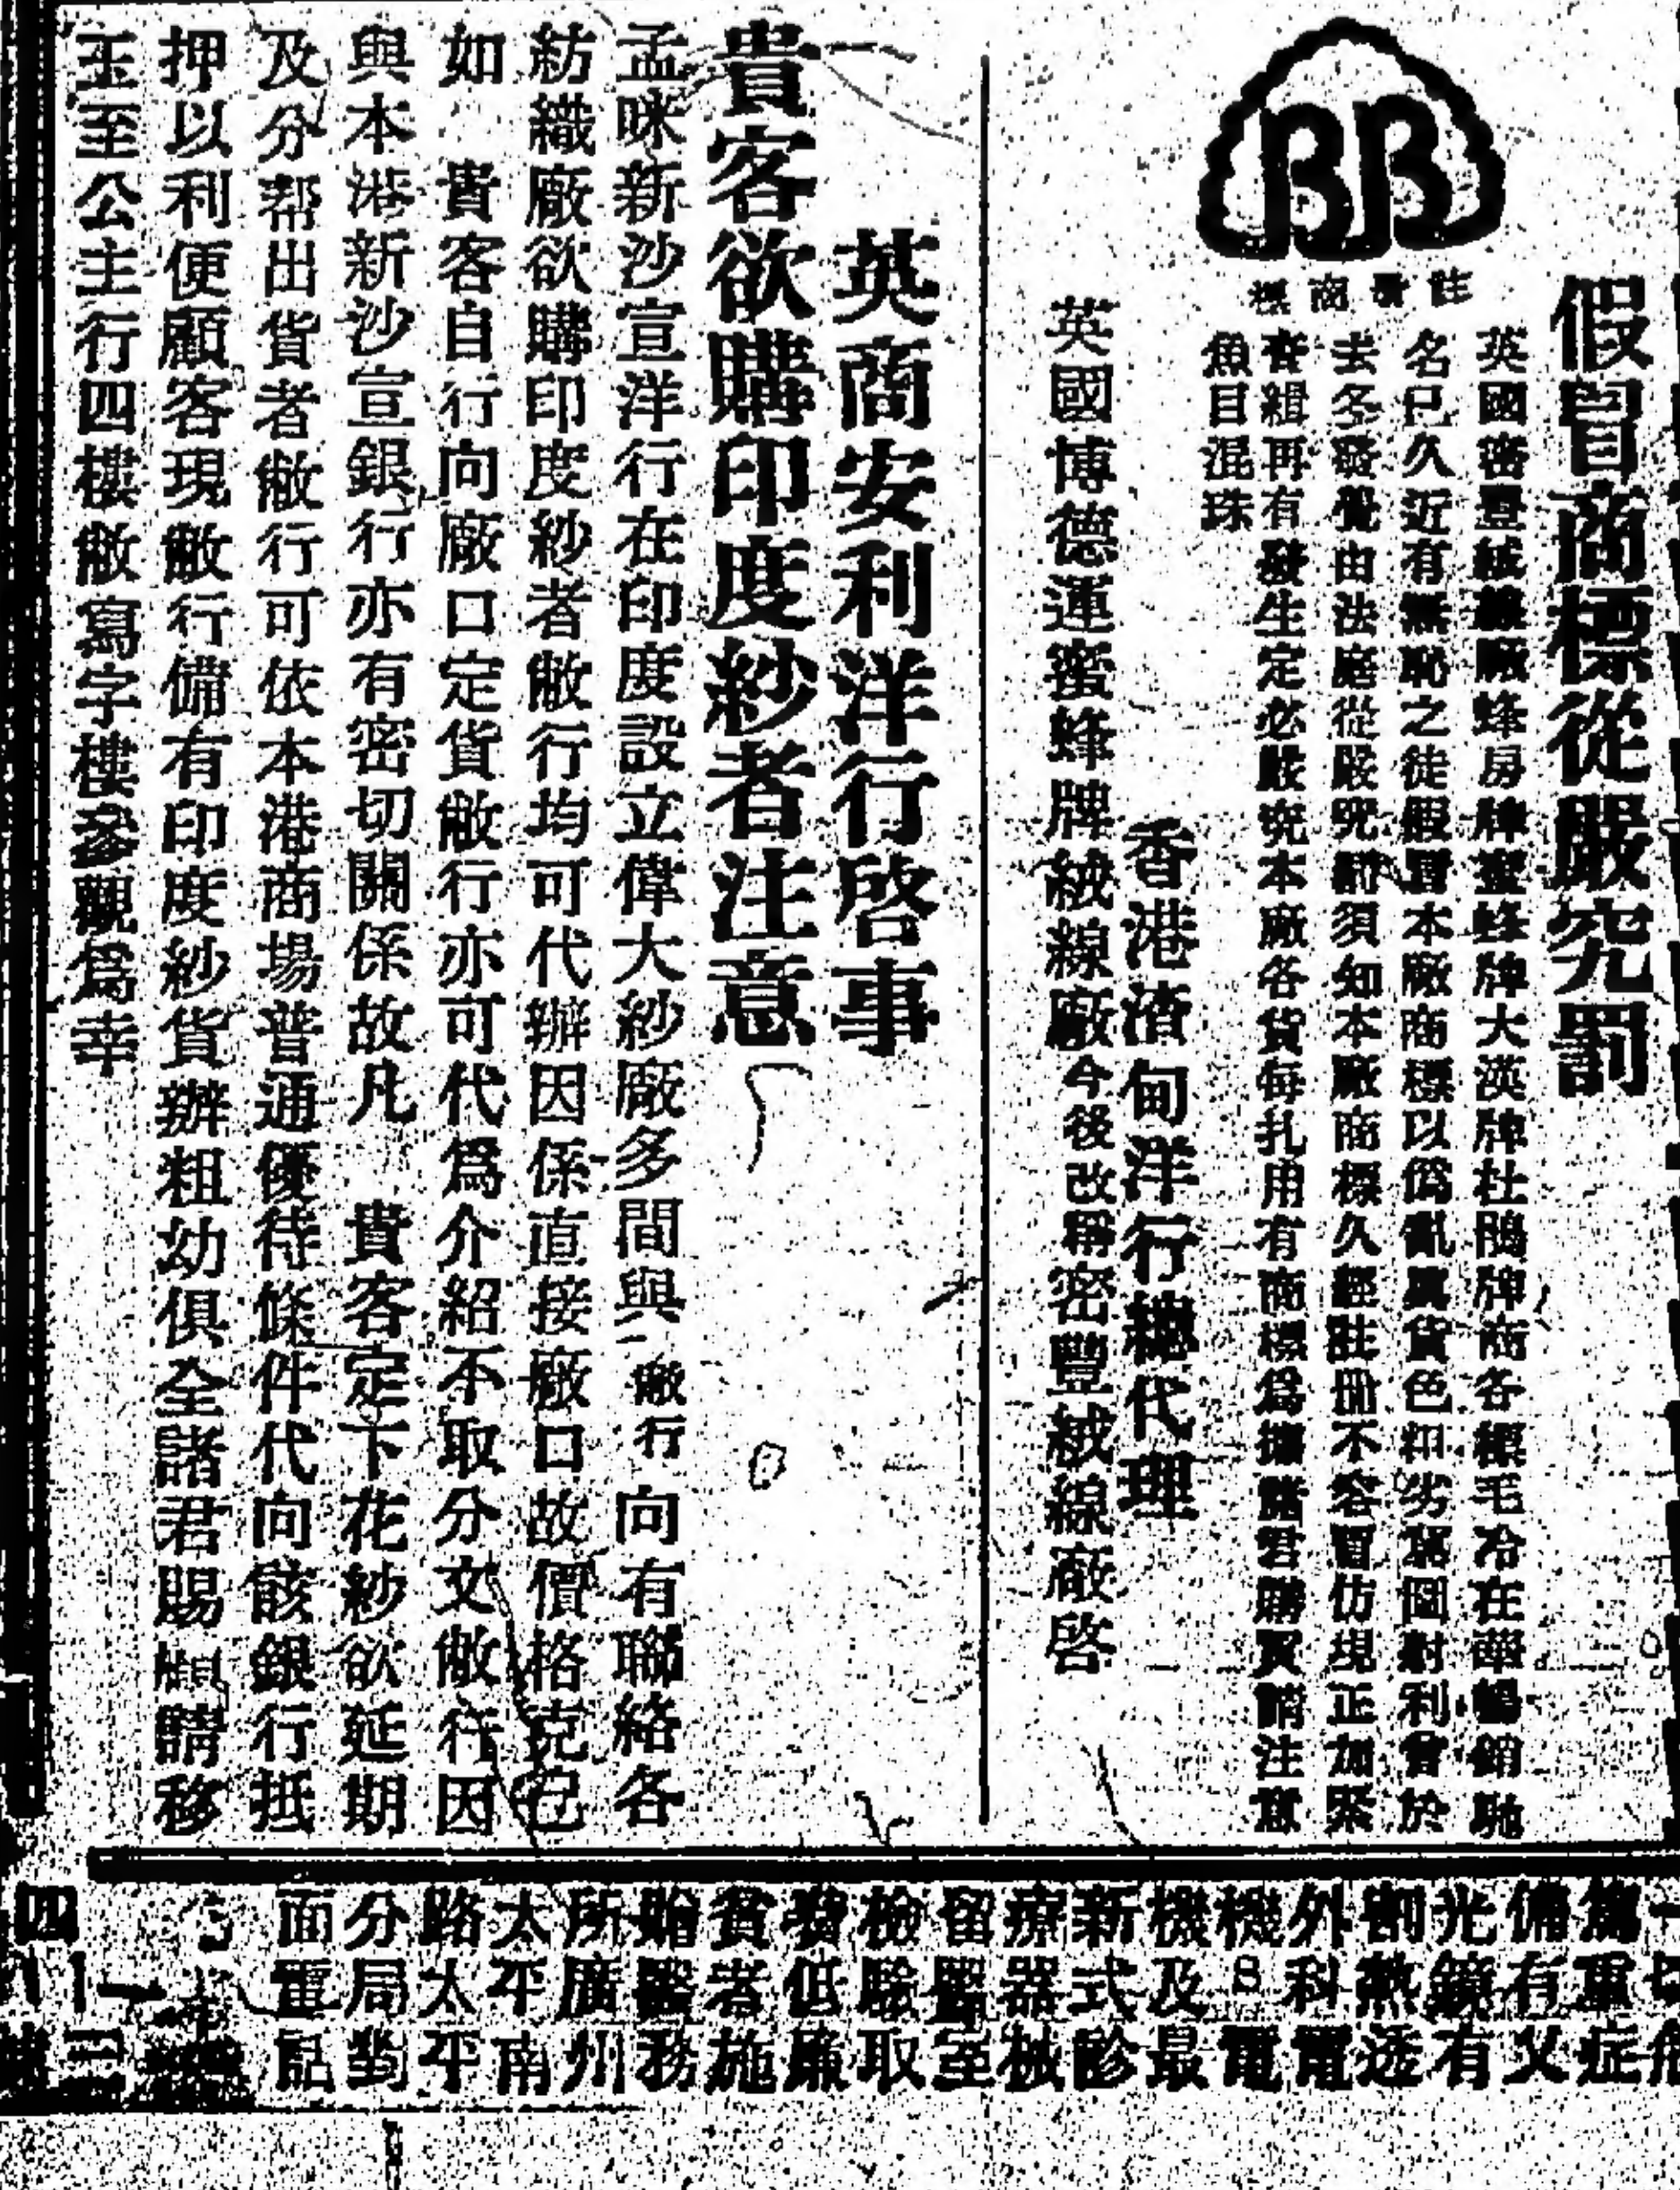 假冒商標從嚴究罰
BB
註冊商標
英國密豐絨線廠蜂房牌蜜蜂牌大漢牌杜鵑牌商各標毛冷在華暢銷馳
名已久近有無恥之徒假冒本廠商標以偽亂眞貨色粗劣冀圖射利曾於
去冬發覺由法庭從嚴究罰須知本廠商標久經註冊不容冒仿現正加緊
查緝再有發生定必嚴究本廠各貨每扎用有商標爲據諸君購買請注意
魚目混珠
香港渣甸洋行總代理
英國博德運蜜蜂牌絨線廠今後改稱密豐絨線廠啓
英商安利洋行啓事
貴客欲購印度紗者注意
孟咪新沙宣洋行在印度設立偉大紗廠多間與敝行向有聯絡各
紡織廠欲購印度紗者敝行均可代辦因係直接廠口故價格克己
如 貴客自行向廠口定貨敝行亦可代爲介紹不取分文敝行因
與本港新沙宣銀行亦有密切關係故凡 貴客定下花紗欲延期
及分帮出貨者敝行可依本港商場普通優待條件代向該銀行抵
押以利便顧客現敝行備有印度紗貨辦粗幼俱全諸君賜顧請移
玉至公主行四樓敝寫字樓參觀爲幸
爲重症
備有又
光鏡有
割熱透
外科電
機S電
機及最
新式診
療器械
留醫室
檢驗取
費低廉
貧者施
贈醫務
所廣州
太平南
路太平
分局對
面電話